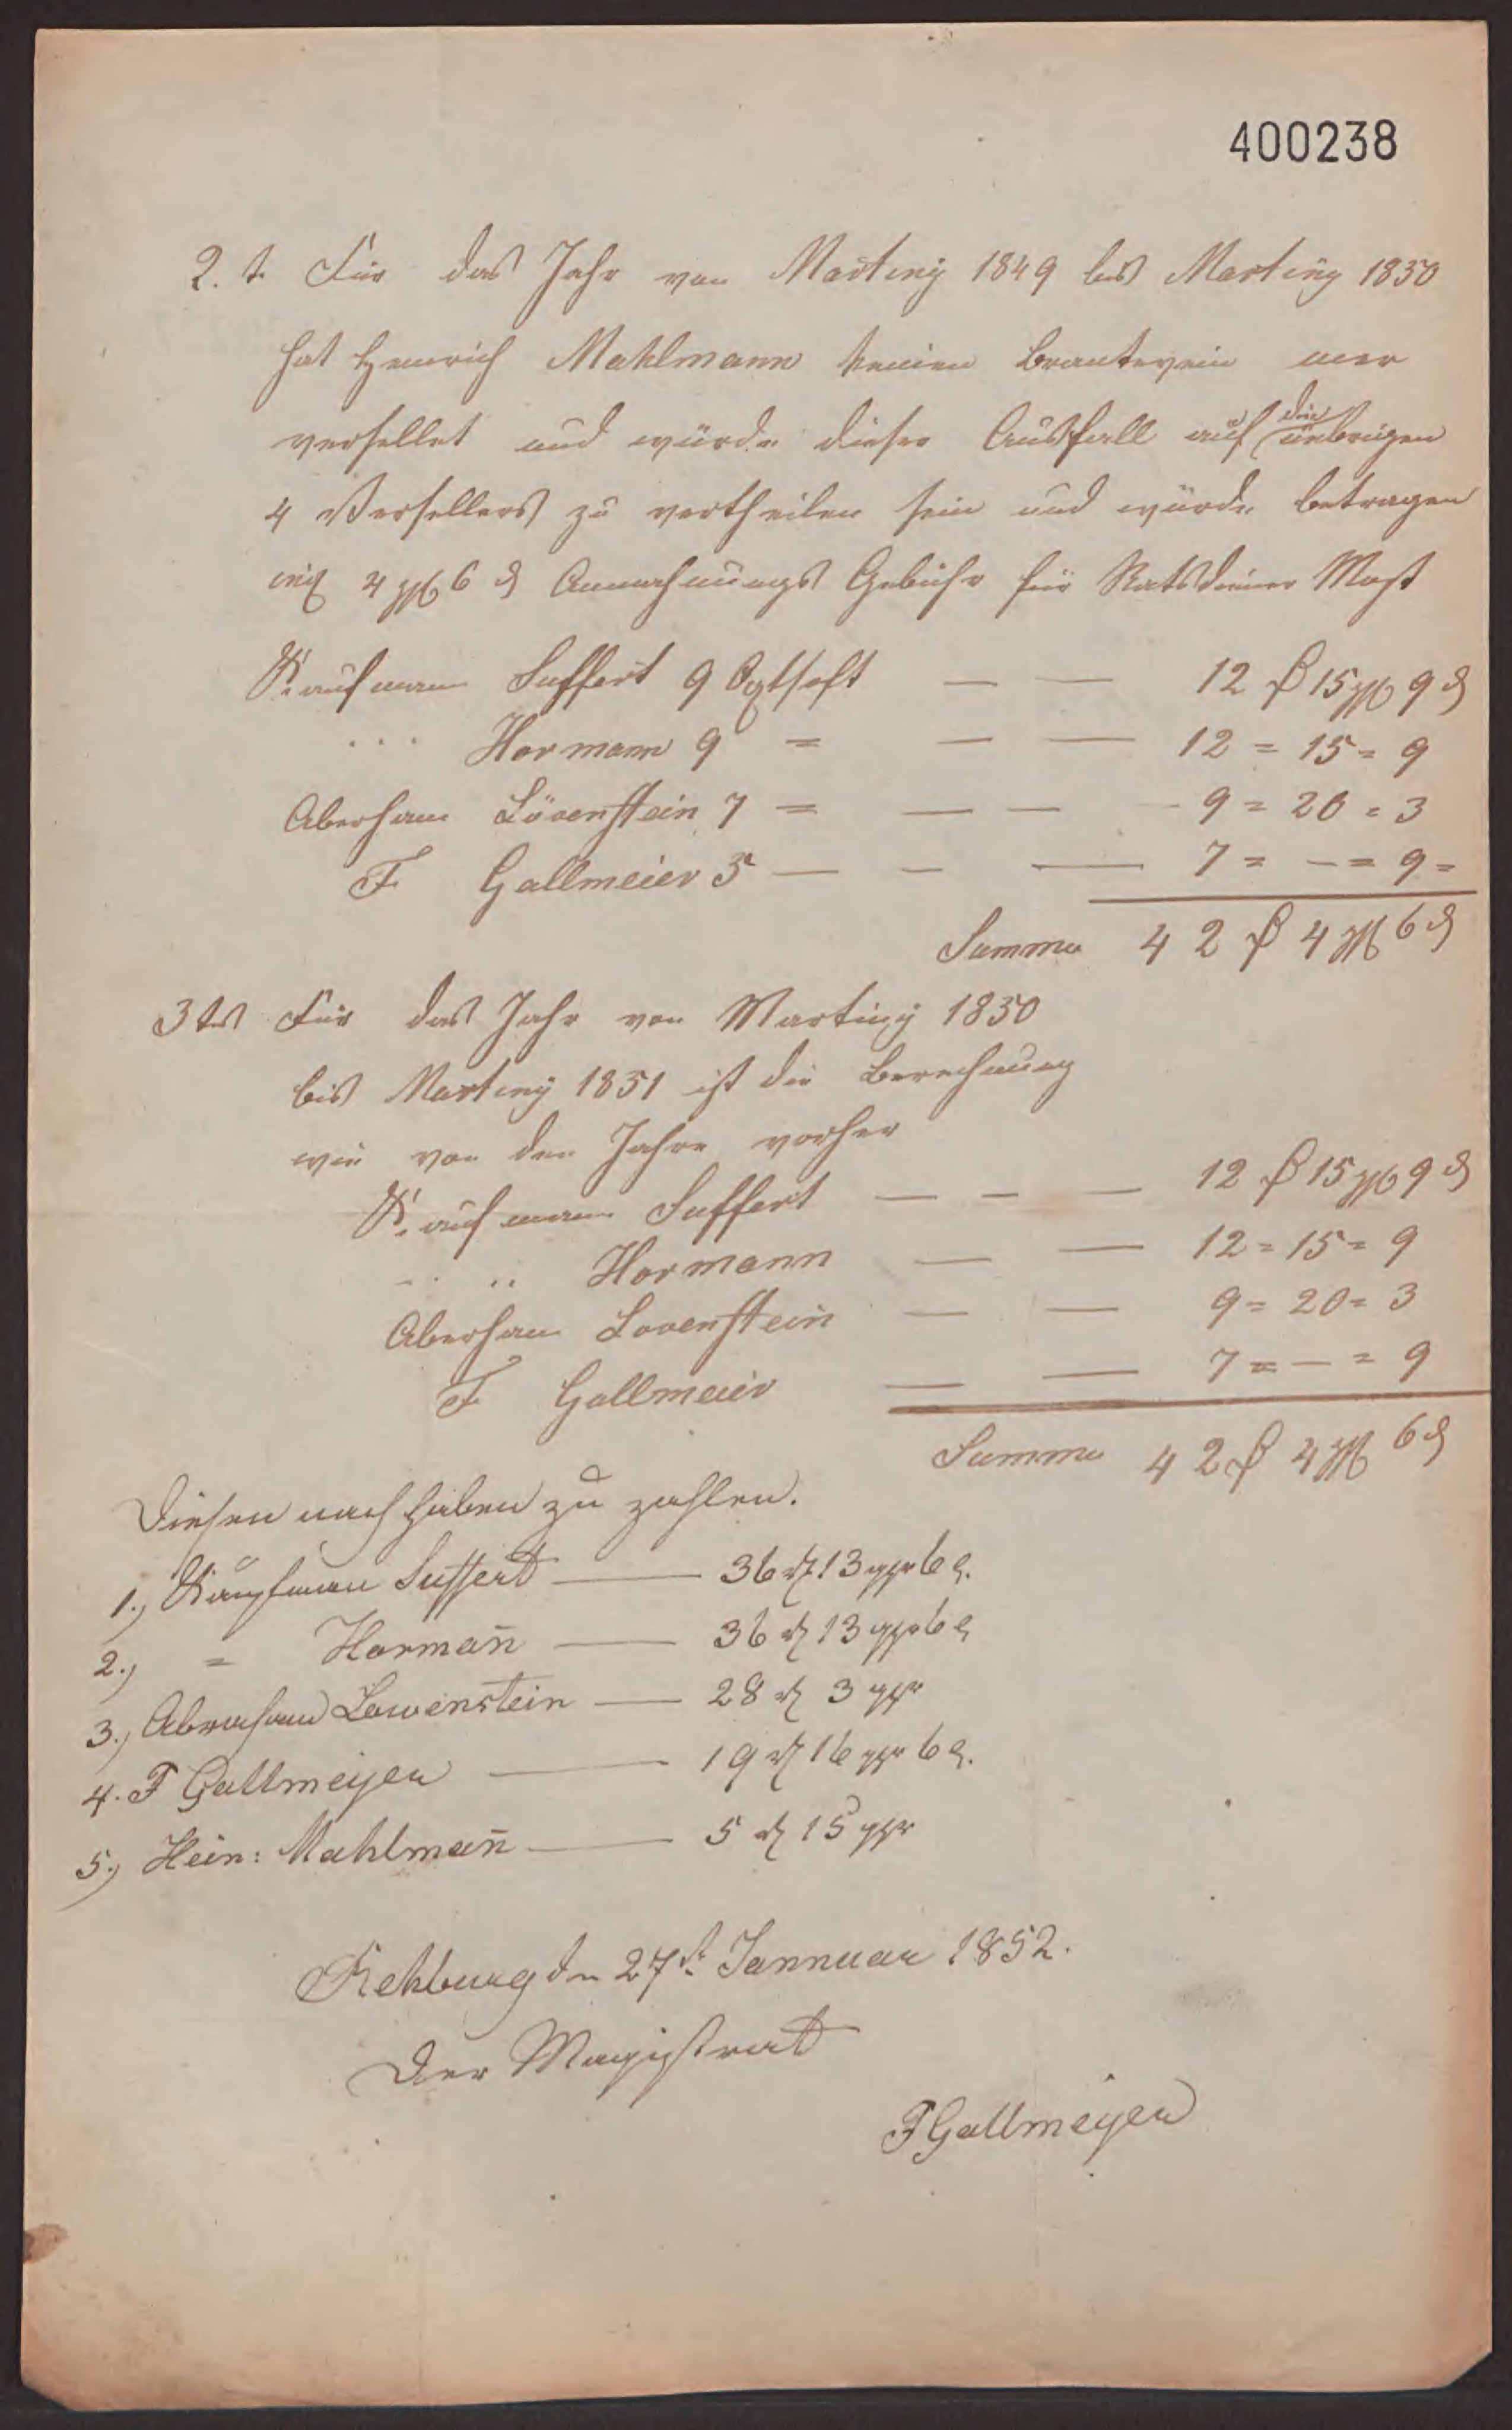 400238
2. t. Für das Jahr von Martiny 1849 bis Martiny 1850
hat Heinrich Mahlmann keinen Brantewein mer
versellet und würde dieser Ausfall auf die üebrigen
4 Versellers zu vertheilen sein und würde betragen
4 ggr 6 d Gebühr für Ratsdiener
Kaufmann Suffert 9 — — 12 rℓ 15 ggr 9 d
... Hormann 9 = — — 12 = 15 = 9
Aberham Lövenstein 7 = — — 9 = 20 = 3
F Gallmeier 5 — — — 7 = — = 9 =
Summa 42 rℓ 4 ggr 6 d
3tes Für das Jahr von Martiny 1850
bis Martiny 1851 ist die Berechnung
wie von den Jahre vorher
Kaufmann Suffert — — — 12 rℓ 15 ggr 9 d
.. .. Hormann — — 12 = 15 = 9
Aberham Lovenstein — — 9 = 20 = 3
F Gallmeier — — 7 = — = 9
Summa 42 rℓ 4 ggr 6 d
Diesen nach haben zu zahlen.
1., Kaufman Suffert — 36 rℓ 13 ggr 6 d.
2., = Hormañ — 36 rℓ 13 ggr 6 d
3., Abraham Lowenstein — 28 rℓ 3 ggr
4. F Gallmeyer — 19 rℓ 16 ggr 6 d.
5., Hein: Mahlmañ — 5 rℓ 15 ggr
Rehburg den 27t. Jannuar 1852.
Der Magistrat
FGallmeyer